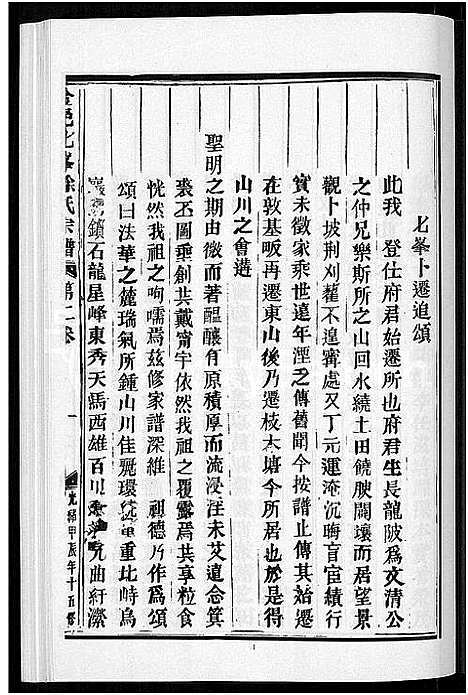 北峯卜遷追頌
此我 登仕府君始遷所也府君生長龍陂爲文清公
之仲兄樂斯所之山回水繞土田饒腴闢壤而居望景
觀卜披荆刈蘿不遑寧處又丁元運淹沉晦盲宦績行
實未徵家乘世遠年湮之傳舊聞今按譜止傳其始遷
在敦基畈再遷東山後乃遷枝大塘今所居也於是得
山川之會遘
聖明之期由微而著醞釀有原積厚而流浸注未艾遠念箕
裘丕圖垂創共戴甯宇依然我祖之覆露焉共享粒食
恍然我祖之呴嚅焉兹修家譜深維 祖德乃作爲頌
頌曰法華之麓瑞氣所鍾山川佳麗環繞重重比峙烏
石龍星峰東秀天馬西雄百川 九曲紆瀠
北峯徐氏宗譜 第二卷
一
光緒甲辰年十五修